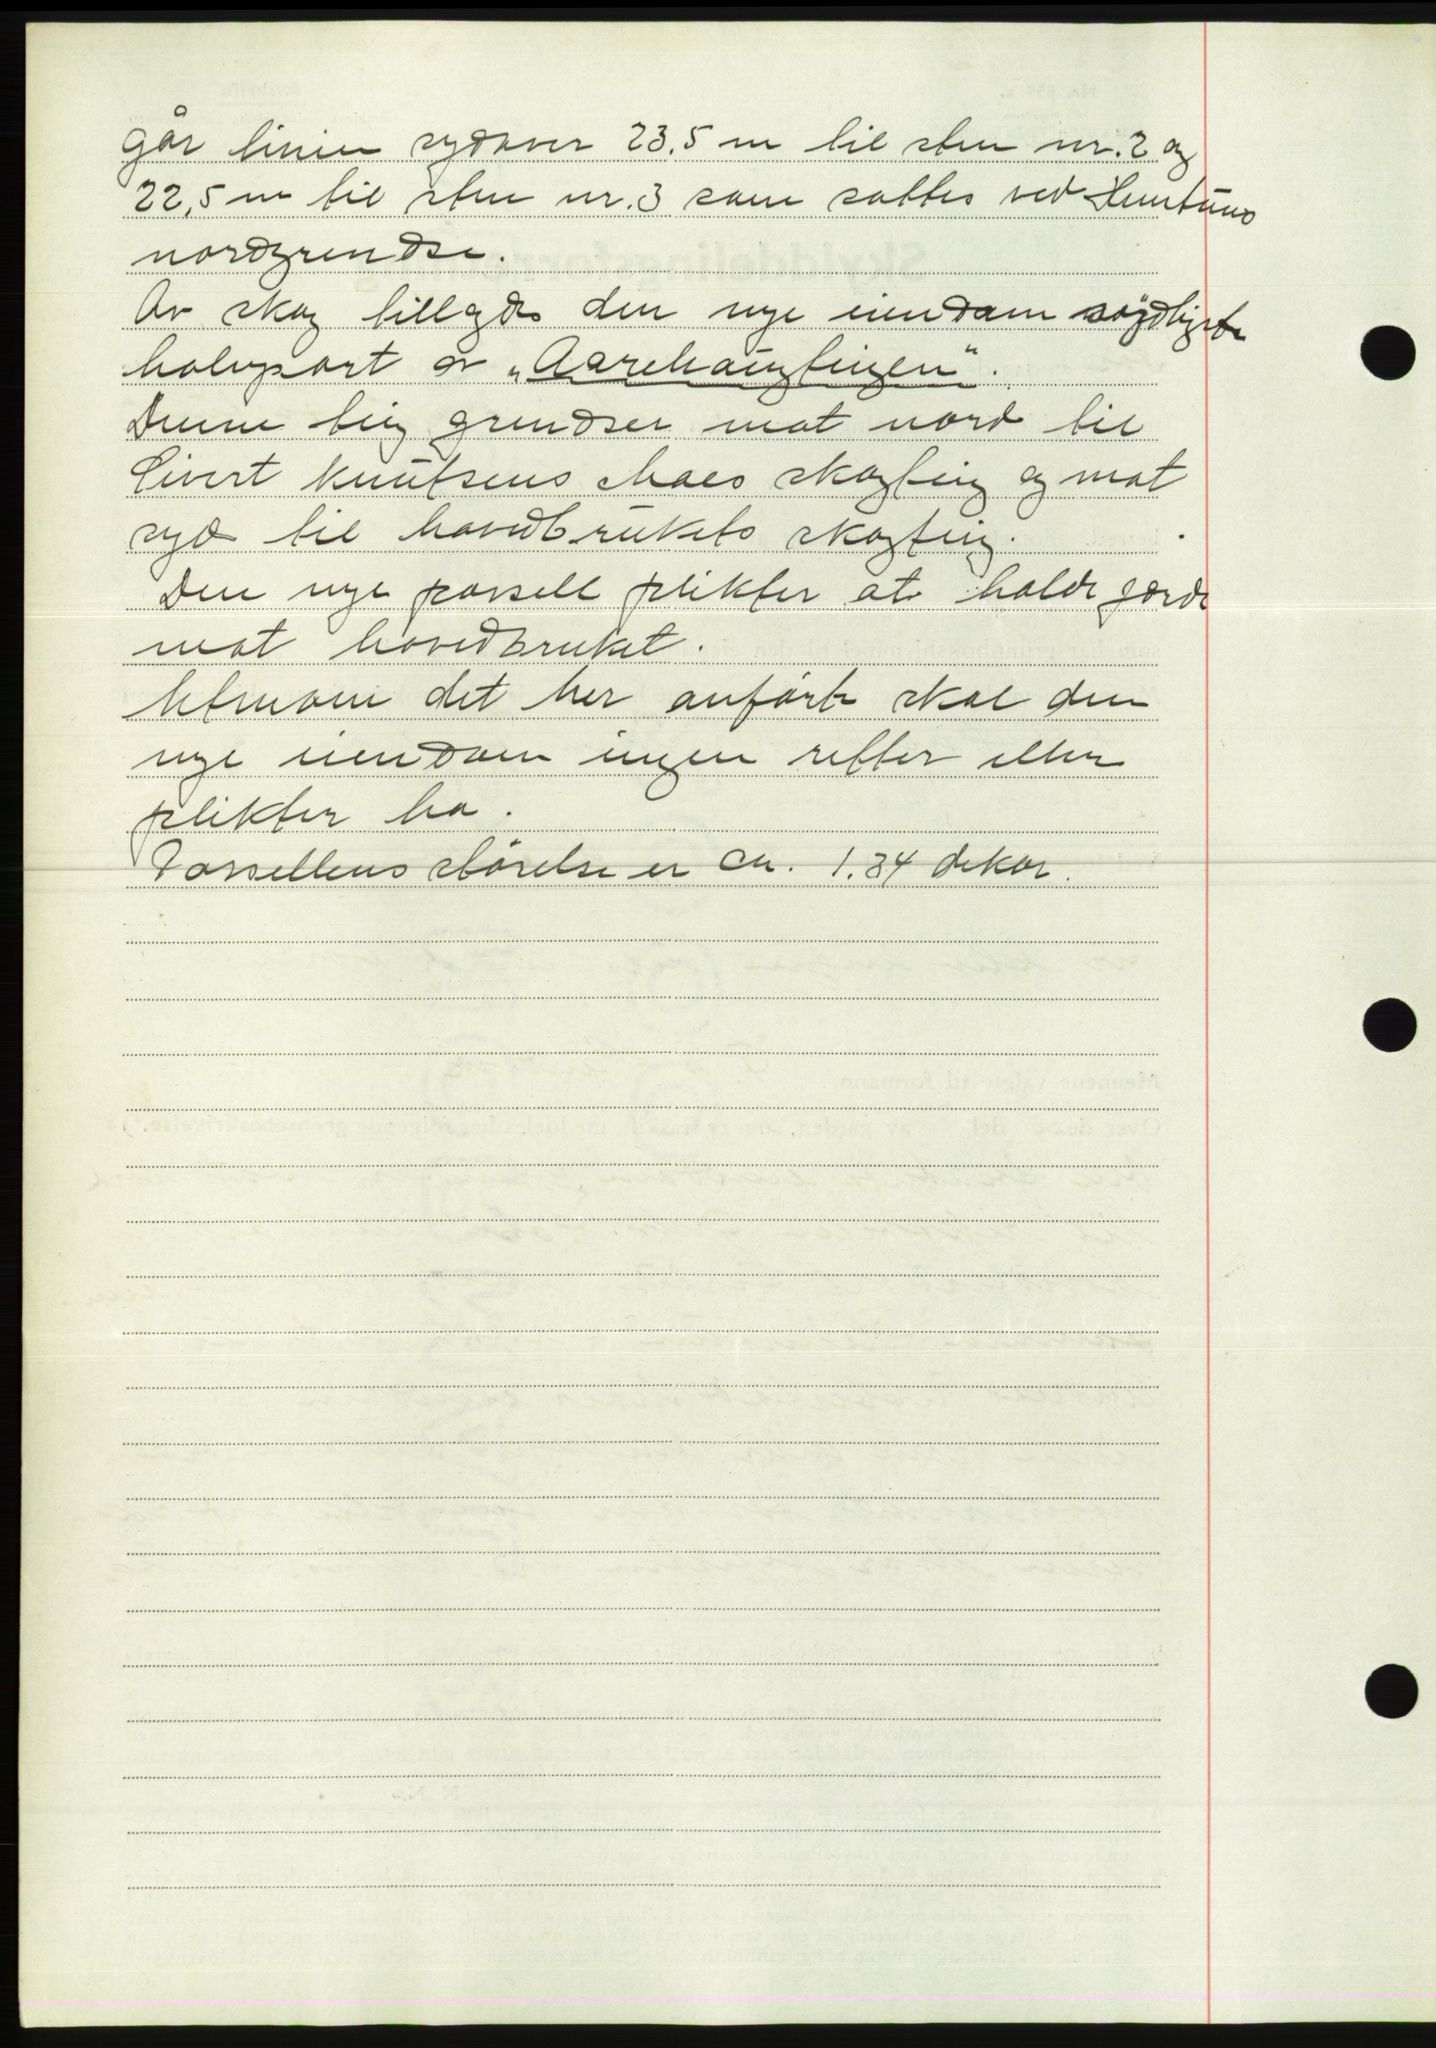 går linien sydover 23,5 m til sten nr. 2 og
22,5 m til sten nr. 3 som sattes ved Hemtuns
nordgrendse.
Av skog tillegdes den nye eiendom søydligste
halvpart av „Aarehaugteigen".
Denne teig grendser mot nord til
Sivert Knutsens Moes skogteig og mot
syd til hovedbrukets skogteig.
Den nye parsell plikter at holde gjerde
mot hovedbruket.
Utenom det her anførte skal den
nye eiendom ingen retter eller
plikter ha.
Parsellens størelse er ca. 1.34 dekar.